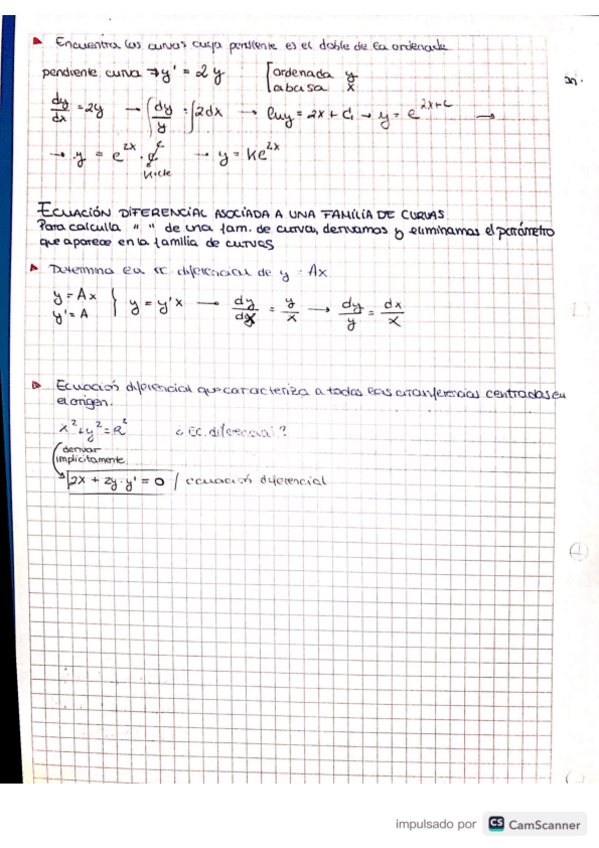 ▶ Encuentra las curvas cuya pendiente es el doble de la ordenada
pendiente curva → y' = 2y [ordenada y
abcisa x
dy/dx = 2y → ∫dy/y = ∫2dx → ln y = 2x + C, → y = e^(2x+C) →
→ y = e^(2x) · e^C → y = Ke^(2x)
K = cte
ECUACIÓN DIFERENCIAL ASOCIADA A UNA FAMÍLIA DE CURVAS
Para calculla " " de una fam. de curva, derivamos y eliminamos el parámetro
que aparece en la familia de curvas
▶ Determina la ec diferencial de y = Ax
y = Ax
y' = A } y = y'x → dy/dx = y/x → dy/y = dx/x
▶ Ecuación diferencial que caracteriza a todas las circunferencias centradas en
el origen.
x² + y² = R² ¿Ec. diferencial?
derivar
implícitamente
2x + 2y · y' = 0 / ecuación diferencial
impulsado por CS CamScanner